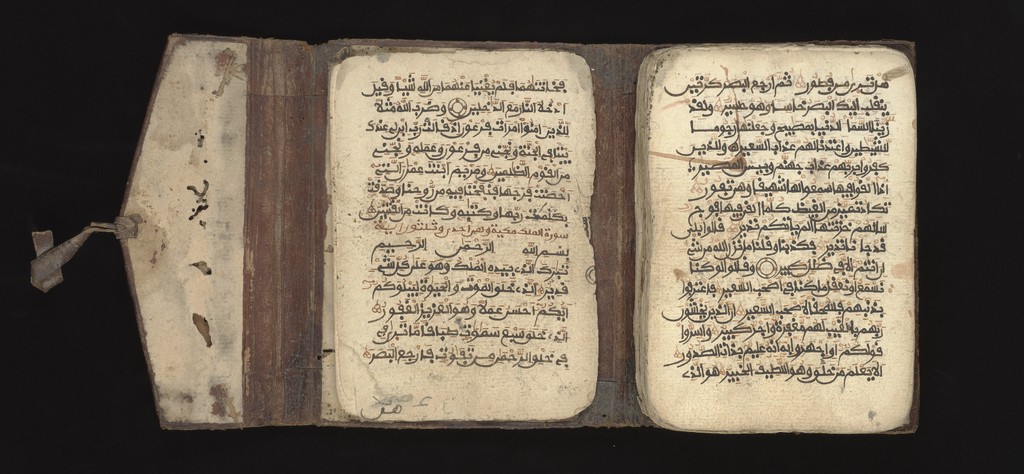 فخانتهما فلم يغنيا عنهما من الله شيا وقيل
ادخلا النار مع الدخلين وضرب الله مثلا
للذين امنوا امرات فرعون اذ قالت رب ابن لي عندك
بيتا في الجنة ونجني من فرعون وعمله ونجني
من القوم الظلمين ومريم ابنت عمرن التي
احصنت فرجها فنفخنا فيه من روحنا وصدقت
بكلمت ربها وكتبه وكانت من القنتين
سورة الملك مكية وهي احدى وثلثون اية
بسم الله الرحمن الرحيم
تبرك الذي بيده الملك وهو على كل شيء
قدير الذي خلق الموت والحيوة ليبلوكم
ايكم احسن عملا وهو العزيز الغفور
الذي خلق سبع سموت طباقا ما ترى في
خلق الرحمن من تفوت فارجع البصر
هل
هل ترى من فطور ثم ارجع البصر كرتين
ينقلب اليك البصر خاسيا وهو حسير ولقد
زينا السما الدنيا بمصبيح وجعلنها رجوما
للشيطين واعتدنا لهم عذاب السعير وللذين
كفروا بربهم عذاب جهنم وبيس المصير
اذا القوا فيها سمعوا لها شهيقا وهي تفور
تكاد تميز من الغيظ كلما القي فيها فوج
سالهم خزنتها الم ياتكم نذير قالوا بلى
قد جانا نذير فكذبنا وقلنا ما نزل الله من شيء
ان انتم الا في ضلل كبير وقالوا لو كنا
نسمع او نعقل ما كنا في اصحب السعير فاعترفوا
بذنبهم فسحقا لاصحب السعير ان الذين يخشون
ربهم بالغيب لهم مغفرة واجر كبير واسروا
قولكم او اجهروا به انه عليم بذات الصدور
الا يعلم من خلق وهو اللطيف الخبير هو الذي